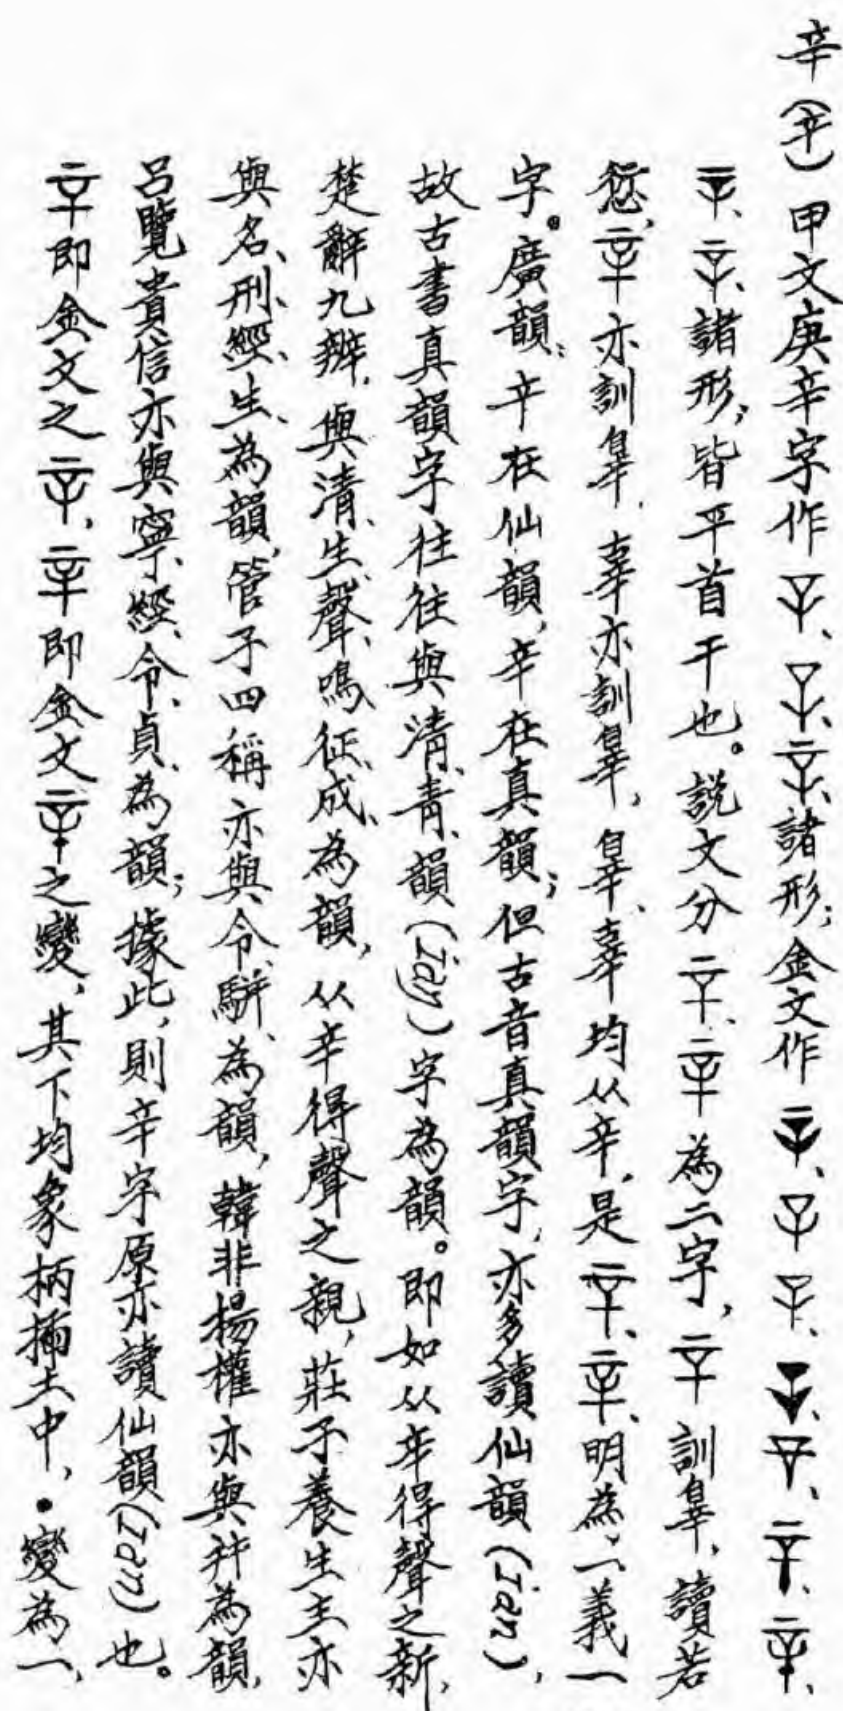 辛（䇂）甲文庚辛字作、、諸形；金文作、、、、、、、
、、諸形，皆平首干也。說文分䇂、辛為二字，䇂訓辠，讀若
愆，辛亦訓辠，辜亦訓辠，辠、辜均从辛，是䇂、辛、明為一義一
字。廣韻：䇂在仙韻，辛在真韻；但古音真韻字，亦多讀仙韻（Ian），
故古書真韻字往往與清、青、韻（Iaŋ）字為韻。即如从辛得聲之新，
楚辭九辯，與清、生、聲、鳴、征、成、為韻，从辛得聲之親，莊子養生主亦
與名、刑、經、生、為韻，管子四稱亦與令、駢、為韻，韓非揚權亦與并為韻，
呂覽貴信亦與寧、經、令、貞、為韻；據此，則辛字原亦讀仙韻（Ian）也。
䇂即金文之，辛即金文之變，其下均象柄插土中，•變為一，